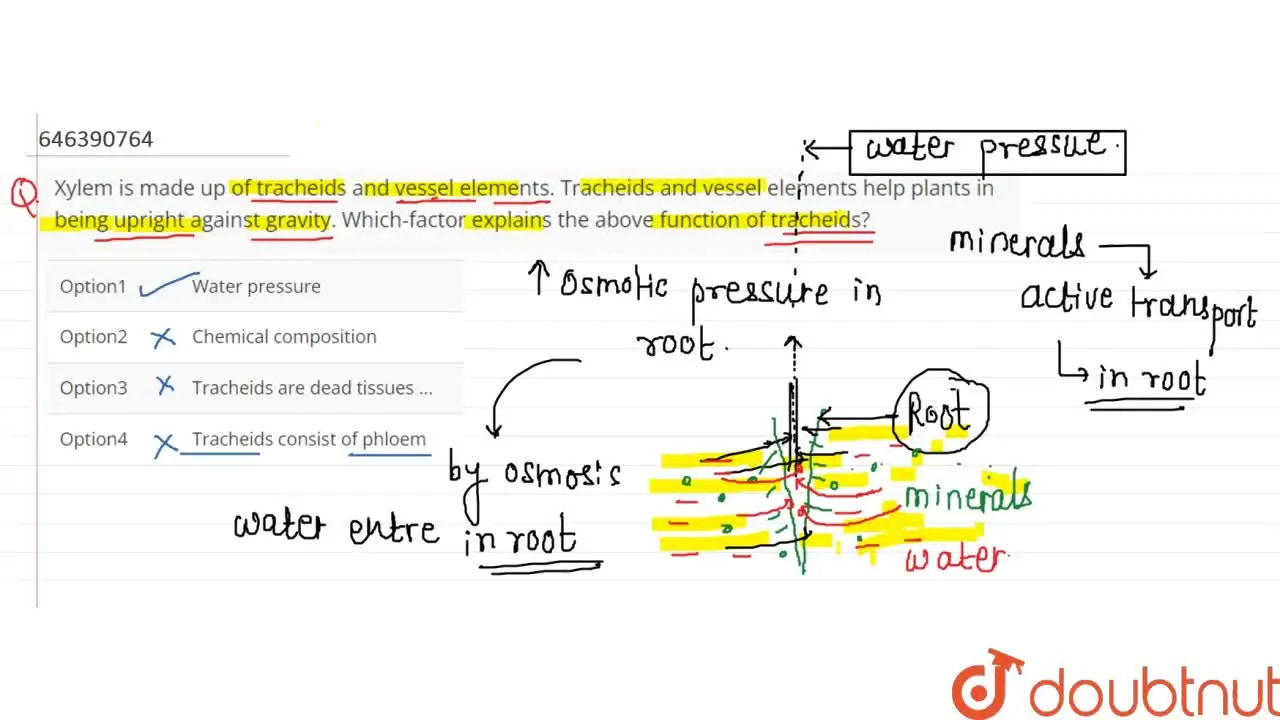 646390764
water pressue.
Q. Xylem is made up of tracheids and vessel elements. Tracheids and vessel elements help plants in
being upright against gravity. Which-factor explains the above function of tracheids?
minerals
Option1 Water pressure
↑ Osmotic pressure in
active transport
Option2 Chemical composition
root.
in root
Option3 Tracheids are dead tissues ...
Root
Option4 Tracheids consist of phloem
by osmosis
minerals
water entre in root
water
doubtnut